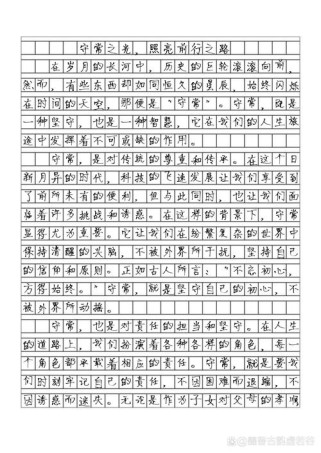 守常之光，照亮前行之路
在岁月的长河中，历史的巨轮滚滚向前，
然而，有些东西却如同恒久的星辰，始终闪烁
在时间的天空，那便是“守常”。守常，既是
一种坚守，也是一种智慧，它在我们的人生旅
途中发挥着不可或缺的作用。
守常，是对传统的尊重和传承。在这个日
新月异的时代，科技的飞速发展让我们享受到
了前所未有的便利，但与此同时，也让我们面
临着许多挑战和诱惑。在这样的背景下，守常
显得尤为重要。它让我们在纷繁复杂的世界中
保持清醒的头脑，不被外界所干扰，坚持自己
的信仰和原则。正如古人所言：“不忘初心，
方得始终。”守常，就是坚守自己的初心，不
被外界所动摇。
守常，也是对责任的担当和坚守。在人生
的道路上，我们扮演着各种各样的角色，每一
个角色都承载着相应的责任。守常，就是要我
们时刻牢记自己的责任，不因困难而退缩，不
因诱惑而迷失。无论是作为子女对父母的孝顺